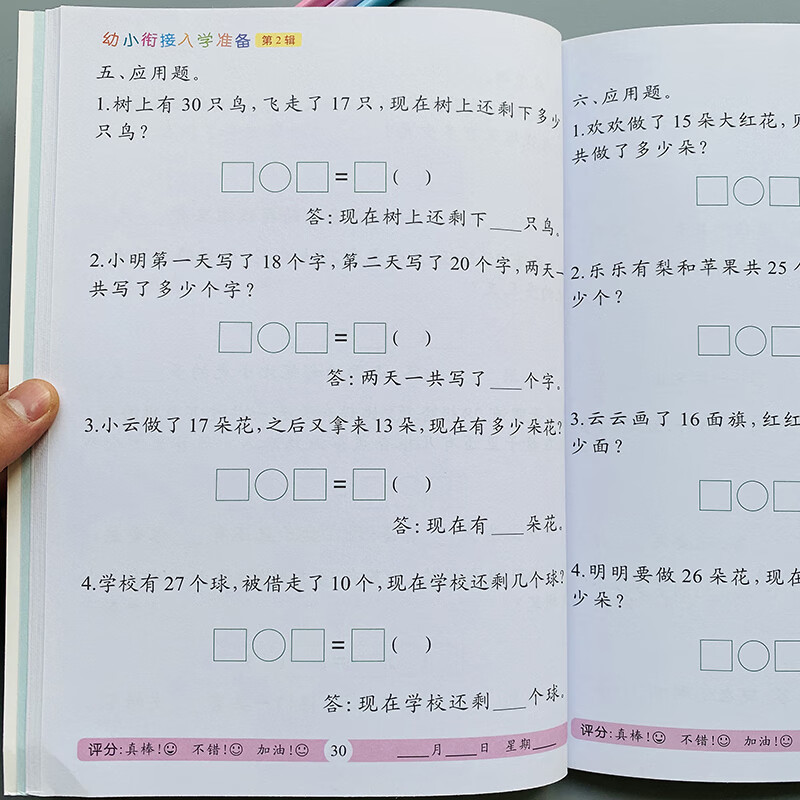 幼小衔接入学准备 第2辑
五、应用题。
1.树上有30只鸟,飞走了17只,现在树上还剩下多少
只鸟?
□○□=□( )
答:现在树上还剩下___只鸟。
2.小明第一天写了18个字,第二天写了20个字,两天一
共写了多少个字?
□○□=□( )
答:两天一共写了___个字。
3.小云做了17朵花,之后又拿来13朵,现在有多少朵花?
□○□=□( )
答:现在有___朵花。
4.学校有27个球,被借走了10个,现在学校还剩几个球?
□○□=□( )
答:现在学校还剩___个球。
评分:真棒! 不错! 加油! 30 ___月___日 星期___
六、应用题。
1.欢欢做了15朵大红花,
共做了多少朵?
□○□
2.乐乐有梨和苹果共25
少个?
□○□
3.云云画了16面旗,红红
少面?
□○□
4.明明要做26朵花,现在
少朵?
□○□
评分:真棒! 不错! 加油!